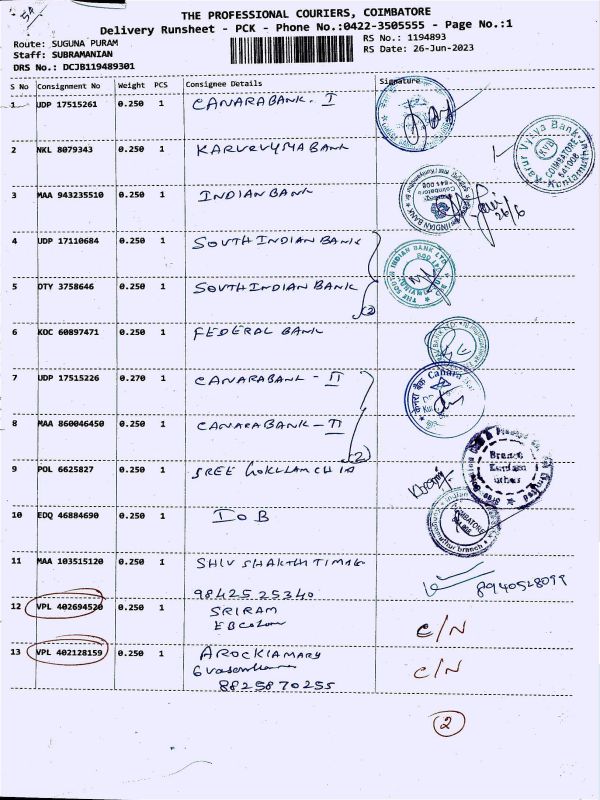 54
THE PROFESSIONAL COURIERS, COIMBATORE
Delivery Runsheet - PCK - Phone No.:0422-3505555 - Page No.:1
Route: SUGUNA PURAM
RS No.: 1194893
Staff: SUBRAMANIAN
RS Date: 26-Jun-2023
DRS No.: DCJB119489301
S No Consignment No Weight PCS Consignee Details Signature
1 UDP 17515261 0.250 1 CANARABANK. I
2 NKL 8079343 0.250 1 KARURVYSYABANK
Karur Vysya Bank KVB COIMBATORE 641008
3 MAA 943235510 0.250 1 INDIANBANK
INDIAN BANK 26/6
4 UDP 17110684 0.250 1 SOUTH INDIAN BANK
THE SOUTH INDIAN BANK LTD
5 DTY 3758646 0.250 1 SOUTHINDIAN BANK (2)
6 KOC 60897471 0.250 1 FEDERAL BANK
7 UDP 17515226 0.270 1 CANARABANK - II
8 MAA 860046450 0.250 1 CANARABANK - II (2)
9 POL 6625827 0.250 1 SREE
Branch
10 EDQ 46884690 0.250 1 IOB
COIMBATORE
11 MAA 103515120 0.250 1 SHIV SHAKTHI TIMBR
9842525340 8940528099
12 VPL 402694520 0.250 1 SRIRAM C/N
13 VPL 402128159 0.250 1 AROCKIAMARY C/N
8825870255
2